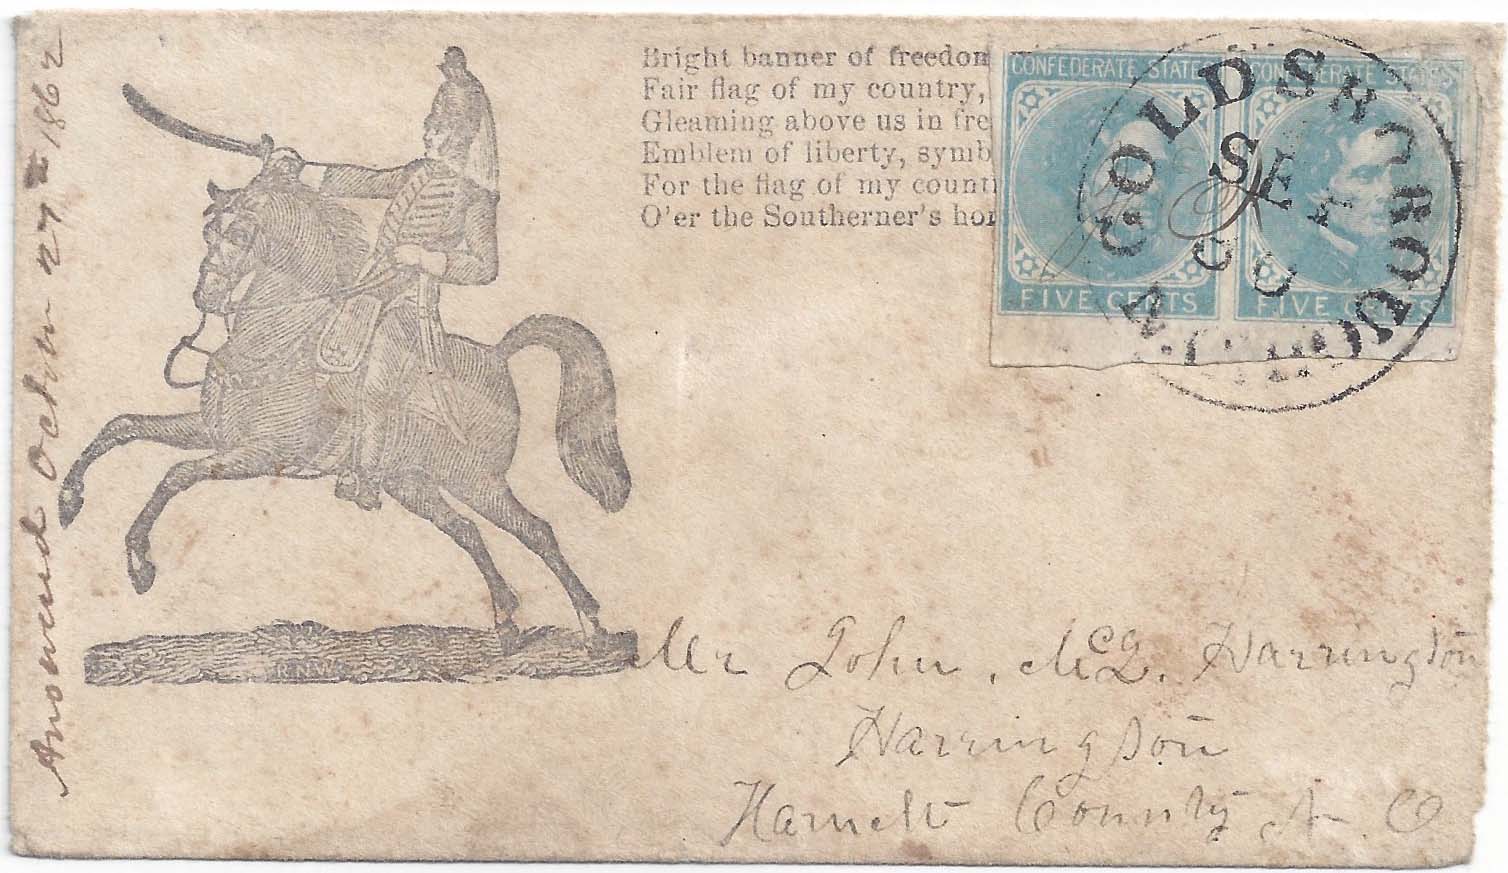 Answered October 27th 1862
Bright banner of freedom
Fair flag of my country,
Gleaming above us in fre
Emblem of liberty, symb
For the flag of my count
O'er the Southerner's ho
CONFEDERATE STATES
FIVE CENTS
CONFEDERATE STATES
FIVE CENTS
GOLDSBOROUGH N.C.
SE
Mr John, McL. Harrington
Harrington
Harnett County N. C